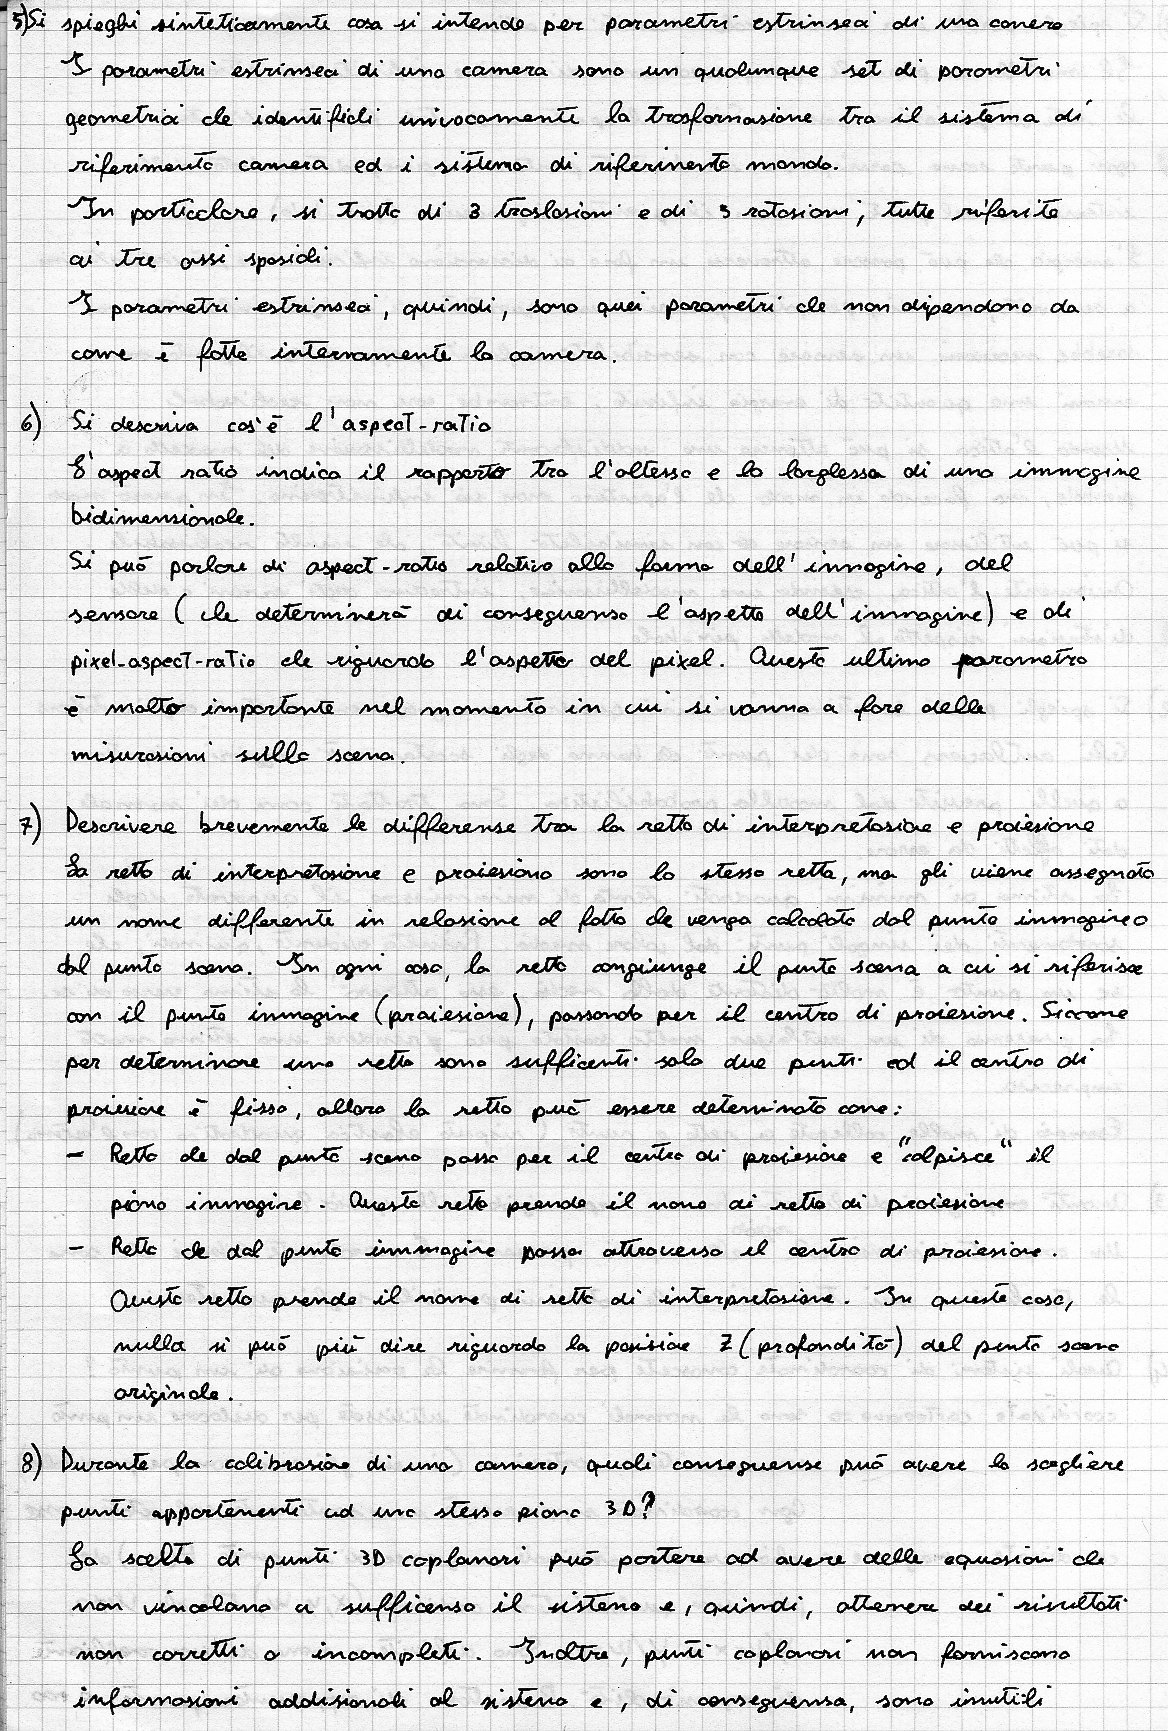 5) Si spieghi sinteticamente cosa si intende per parametri estrinseci di una camera
I parametri estrinseci di una camera sono un qualunque set di parametri
geometrici che identifichi univocamente la trasformazione tra il sistema di
riferimento camera ed i sistema di riferimento mondo.
In particolare, si tratta di 3 traslazioni e di 3 rotazioni, tutte riferite
ai tre assi spaziali.
I parametri estrinseci, quindi, sono quei parametri che non dipendono da
come è fatta internamente la camera.
6) Si descriva cos'è l'aspect-ratio
L'aspect ratio indica il rapporto tra l'altezza e la larghezza di una immagine
bidimensionale.
Si può parlare di aspect-ratio relativo alla forma dell'immagine, del
sensore (che determinerà di conseguenza l'aspetto dell'immagine) e di
pixel-aspect-ratio che riguarda l'aspetto del pixel. Questo ultimo parametro
è molto importante nel momento in cui si vanno a fare delle
misurazioni sulla scena.
7) Descrivere brevemente le differenze tra la retta di interpretazione e proiezione
La retta di interpretazione e proiezione sono la stessa retta, ma gli viene assegnato
un nome differente in relazione al fatto che venga calcolata dal punto immagine o
dal punto scena. In ogni caso, la retta congiunge il punto scena a cui si riferisce
con il punto immagine (proiezione), passando per il centro di proiezione. Siccome
per determinare una retta sono sufficenti solo due punti ed il centro di
proiezione è fisso, allora la retta può essere determinata come:
- Retta che dal punto scena passa per il centro di proiezione e "colpisce" il
piano immagine. Questa retta prende il nome di retta di proiezione
- Retta che dal punto immagine passa attraverso il centro di proiezione.
Questa retta prende il nome di retta di interpretazione. In questo caso,
nulla si può più dire riguardo la posizione Z (profondità) del punto scena
originale.
8) Durante la calibrazione di una camera, quali conseguenze può avere lo scegliere
punti appartenenti ad uno stesso piano 3D?
La scelta di punti 3D coplanari può portare ad avere delle equazioni che
non vincolano a sufficenza il sistema e, quindi, ottenere dei risultati
non corretti o incompleti. Inoltre, punti coplanari non forniscono
informazioni addizionali al sistema e, di conseguenza, sono inutili